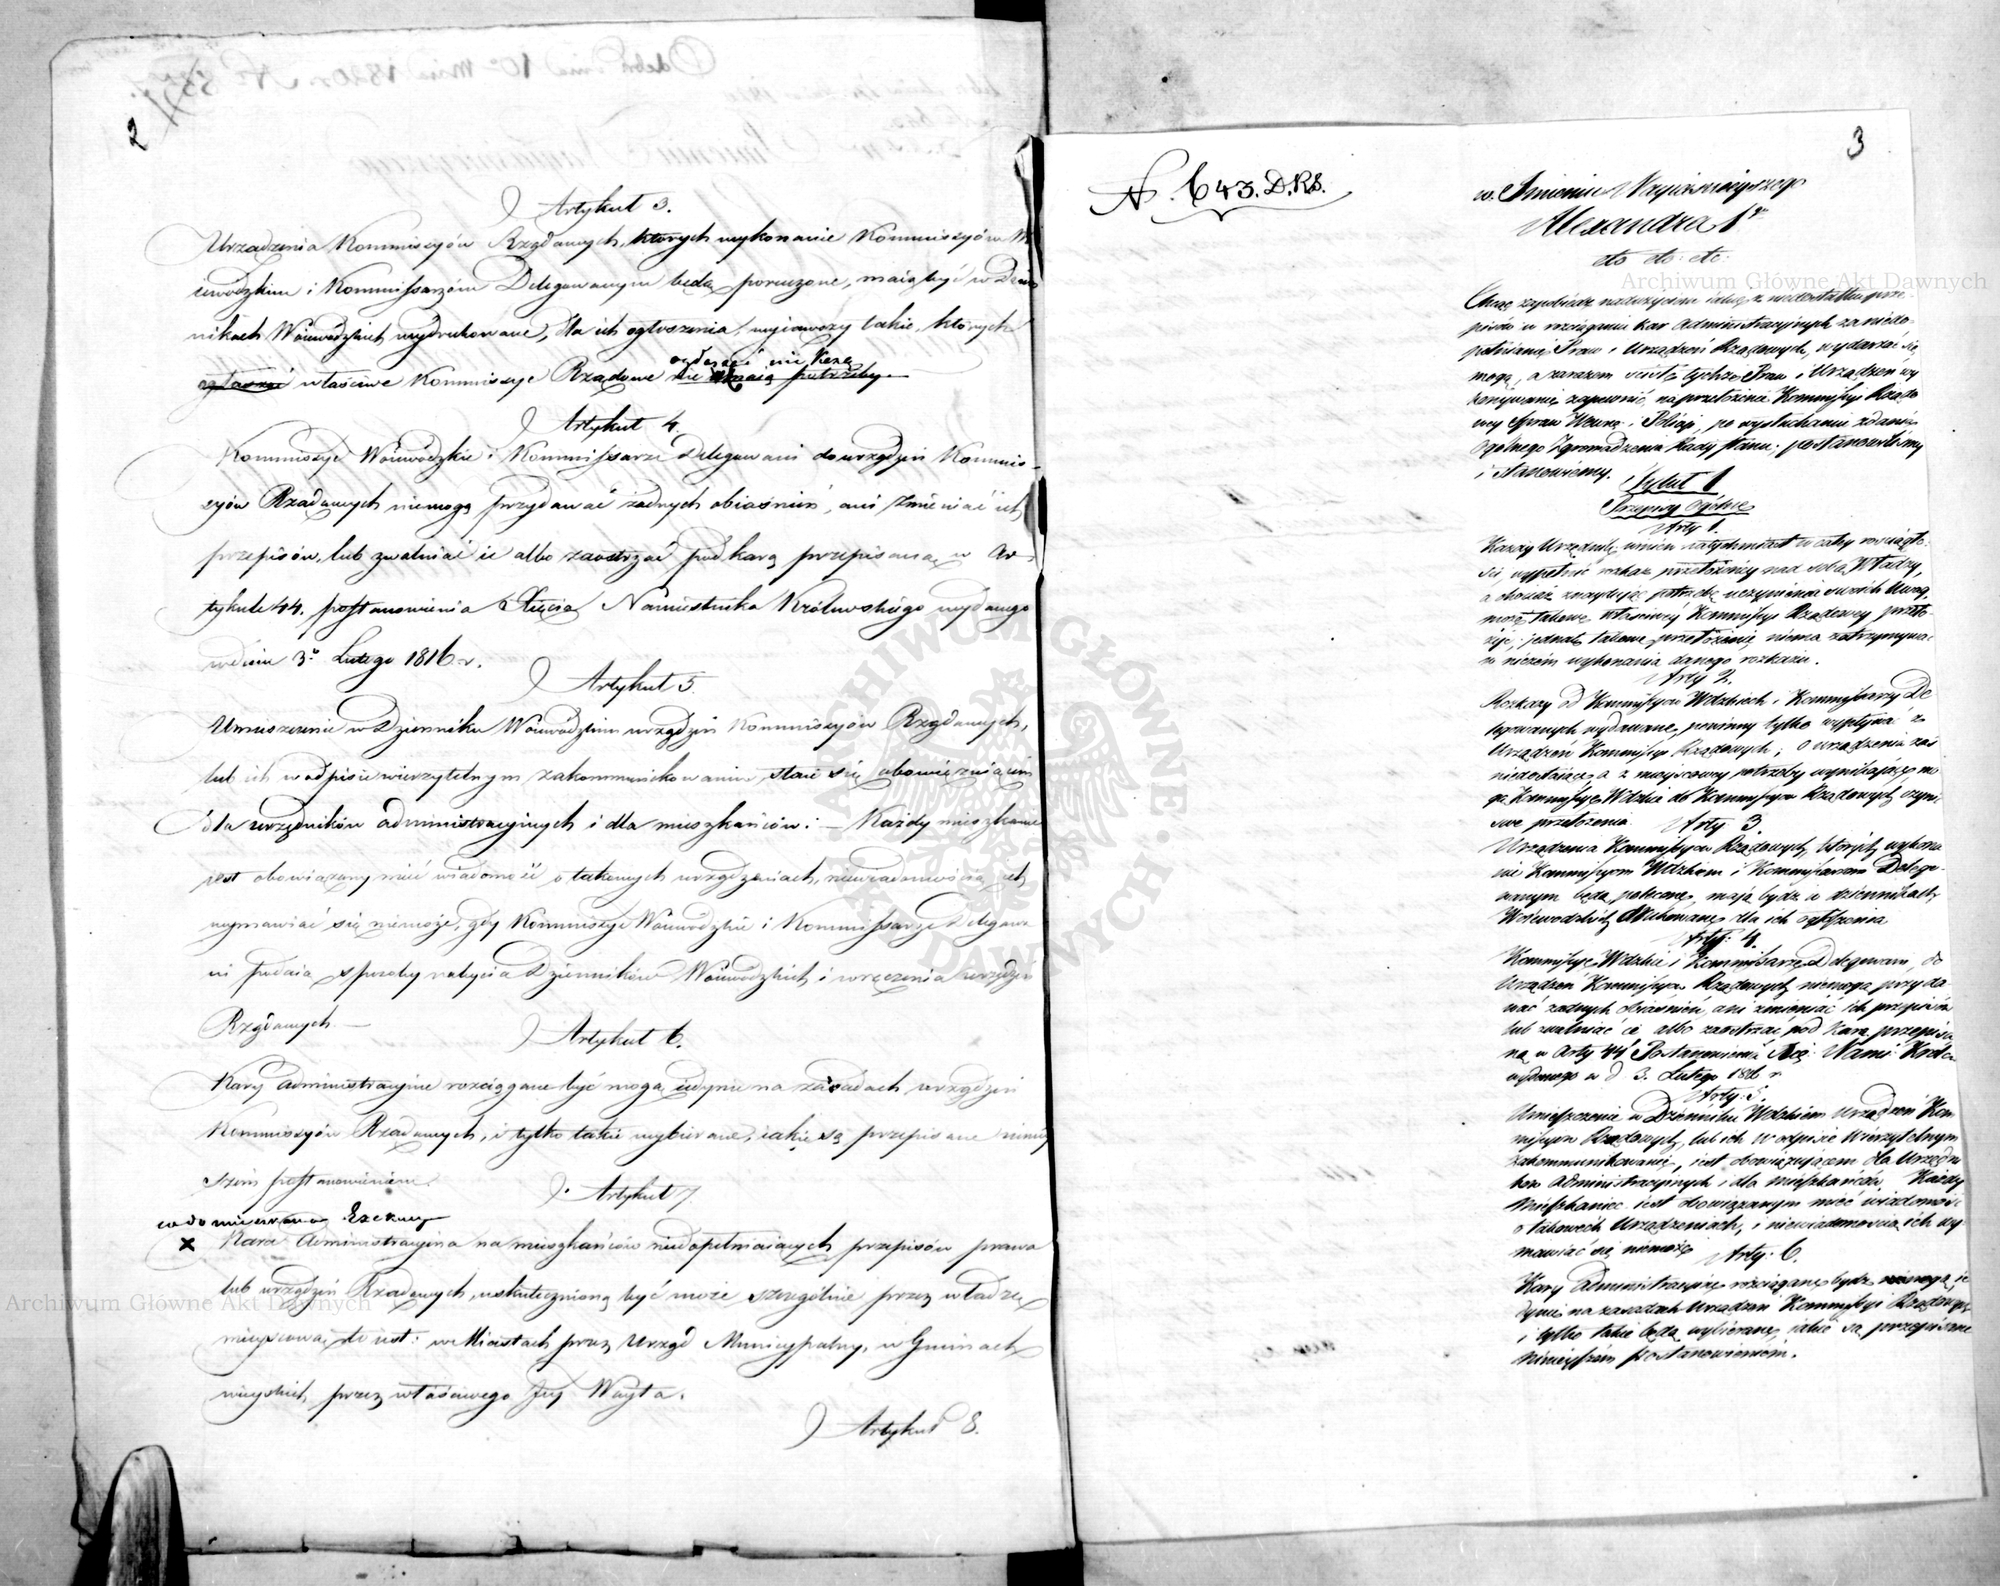 2
Artykuł 3.
Urządzenia Kommissyów Rządowych, których wykonanie Kommissyóm Wo
iewódzkim i Kommissarzóm Delegowanym będą poruczone, maią być w Dzien
nikach Woiewódzkich wydrukowane, dla ich ogłoszenia, wyiąwszy takie, których
ogłosić nie każą
ogłaszać właściwe Kommissye Rządowe nie maią potrzeby.
Artykuł 4.
Kommissye Woiewódzkie i Kommissarze Delegowani do urządzeń Kommis-
syów Rządowych niemogą przydawać żadnych obiaśnień, ani zmieniać ich
przepisów, lub zwalniać ie albo zaostrzać pod karą przepisaną w Ar-
tykule 44. postanowienia Xięcia Namiestnika Królewskiego wydanego
w dniu 3º Lutego 1816 r.
Artykuł 5.
Umieszczenie w Dzienniku Woiewódzkim urządzeń Kommissyów Rządowych,
lub ich w odpisie wierzytelnym zakommunikowanie, staie się obowięzuiącem
dla urzędników administracyinych i dla mieszkańców: — Każdy mieszkaniec
iest obowiązany mieć wiadomość o takowych urządzeniach, niewiadomością ich
wymawiać się niemoże, gdy Kommissye Woiewódzkie i Kommissarze Delegowa
ni podaią sposoby nabycia Dzienników Woiewódzkich i wręczenia urządzeń
Rządowych. —
Artykuł 6.
Kary administracyine rozciągane być mogą iedynie na zasadach urządzeń
Kommissyów Rządowych, i tylko takie wybierane, iakie są przepisane niniey
szem postanowieniem.
Artykuł 7.
Kara Administracyina na mieszkańców niedopełniaiących przepisów prawa
lub urządzeń Rządowych, uskutecznioną być może szczególnie przez władzę
mieyscową, to iest: w Miastach przez Urząd Municypalny, w Gminach
wieyskich, przez właściwego Jey Woyta.
Artykuł 8.
3
N. 643. D.R.S.
w Imieniu Nayiaśnieyszego
Alexandra 1º
etc etc etc.
Chcąc zapobiedz nadużyciom iakie z niedostatku prze-
pisów w rozciąganiu kar administracyinych za niedo-
pełnianie Praw i Urządzeń Rządowych, wydarzać się
mogą, a zarazem ścisłe tychże Praw i Urządzeń wy
konywanie zapewnić, na przełożenie Kommissyi Rządo
wey Spraw Wewnę: i Policji, po wysłuchaniu zdania
Ogólnego Zgromadzenia Rady Stanu; postanowiliśmy
i stanowiemy.
Tytuł 1
Przepisy Ogólne
Arty 1.
Każdy Urzędnik, winien natychmiast w całey rozciągło-
ści wypełnić rozkaz przełożoney nad sobą Władzy,
a chociaż znayduie potrzebę uczynienia swoich Uwag,
może takowe właściwey Kommissyi Rządowey przeło-
żyć; jednak takowe przełożenie niema zatrzymywa-
w niczém wykonania danego rozkazu.
Arty 2.
Rozkazy od Kommissyów Wdzkich i Kommissarzy De
legowanych wydawane, powinny tylko wypływać z
Urządzeń Kommissyów Rządowych; O urządzenia zaś
niedostaiące a z mieyscowey potrzeby wynikaiące, mo
gą Kommissye Wdzkie do Kommissyów Rządowych czynić
swe przełożenia.
Arty 3.
Urządzenia Kommissyów Rządowych, których wykona
nie Kommissyom Wdzkim i Kommissarzom Delego-
wanym będą polecone, mają bydź w dziennikach
Wojewodzkich drukowane dla ich ogłoszenia
Arty. 4.
Kommissye Wdzkie i Kommissarze Delegowani, do
Urządzeń Kommissyów Rządowych niemogą przyda-
wać żadnych obiaśnień, ani zmieniać ich przepisów
lub zwalniać ie albo zaostrzać pod karą przepisa
ną w Arty 44 Postanowienia Xcia Nami: Króla
wydanego w d 3. Lutego 1816 r
Arty. 5.
Umieszczenie w Dzienniku Wdzkim Urządzeń Kom
missyów Rządowych, lub ich w odpisie wierzytelnym
zakommunikowanie, iest obowięzującem dla Urzędni
ków administracyinych i dla mieszkańców. Każdy
Mieszkaniec iest obowiązanym mieć wiadomość
o takowych Urządzeniach, i niewiadomością ich wy-
mawiać się niemoże
Arty. 6.
Kary administracyine rozciągane bydź mogą ie
dynie na zasadach Urządzeń Kommissyi Rządowych
i tylko takie będą wybierane, iakie są przepisane
ninieyszém postanowieniem.
Archiwum Główne Akt Dawnych
Archiwum Główne Akt Dawnych
ARCHIWUM GŁÓWNE AKT DAWNYCH